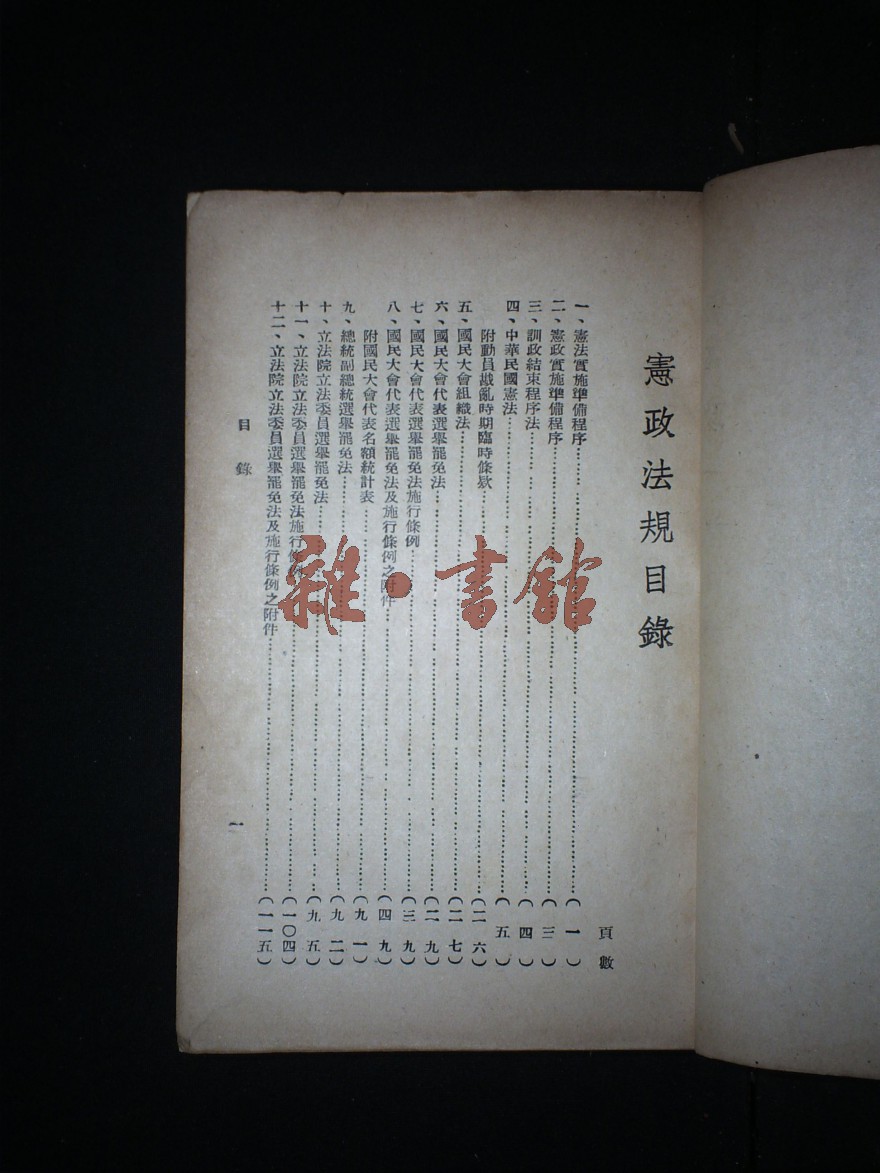 憲政法規目錄
頁數
一、憲法實施準備程序……(一)
二、憲政實施準備程序……(三)
三、訓政結束程序法……(四)
四、中華民國憲法……(五)
附動員戡亂時期臨時條欵……(二六)
五、國民大會組織法……(二七)
六、國民大會代表選舉罷免法……(二九)
七、國民大會代表選舉罷免法施行條例……(三九)
八、國民大會代表選舉罷免法及施行條例之附件……(四九)
附國民大會代表名額統計表……(九一)
九、總統副總統選舉罷免法……(九二)
十、立法院立法委員選舉罷免法……(九五)
十一、立法院立法委員選舉罷免法施行條例……(一〇四)
十二、立法院立法委員選舉罷免法及施行條例之附件……(一一五)
目錄
一
雜·書館